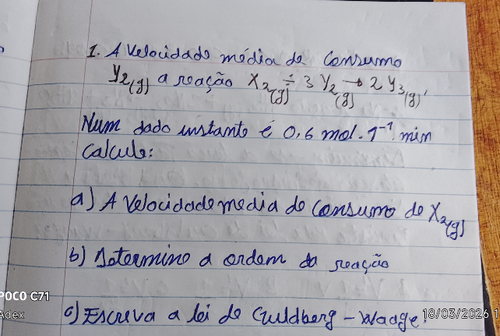 1. A velocidade média de consumo
Y2(g) a reação X2(g) + 3 Y2(g) → 2 Y3(g),
Num dado instante é 0,6 mol.1⁻¹ min
Calcule:
a) A velocidade media de consumo de X2(g)
b) Determine a ordem da reação
c) Escreva a lei de Guldberg-Waage.
POCO C71
Adex
18/03/2026 1